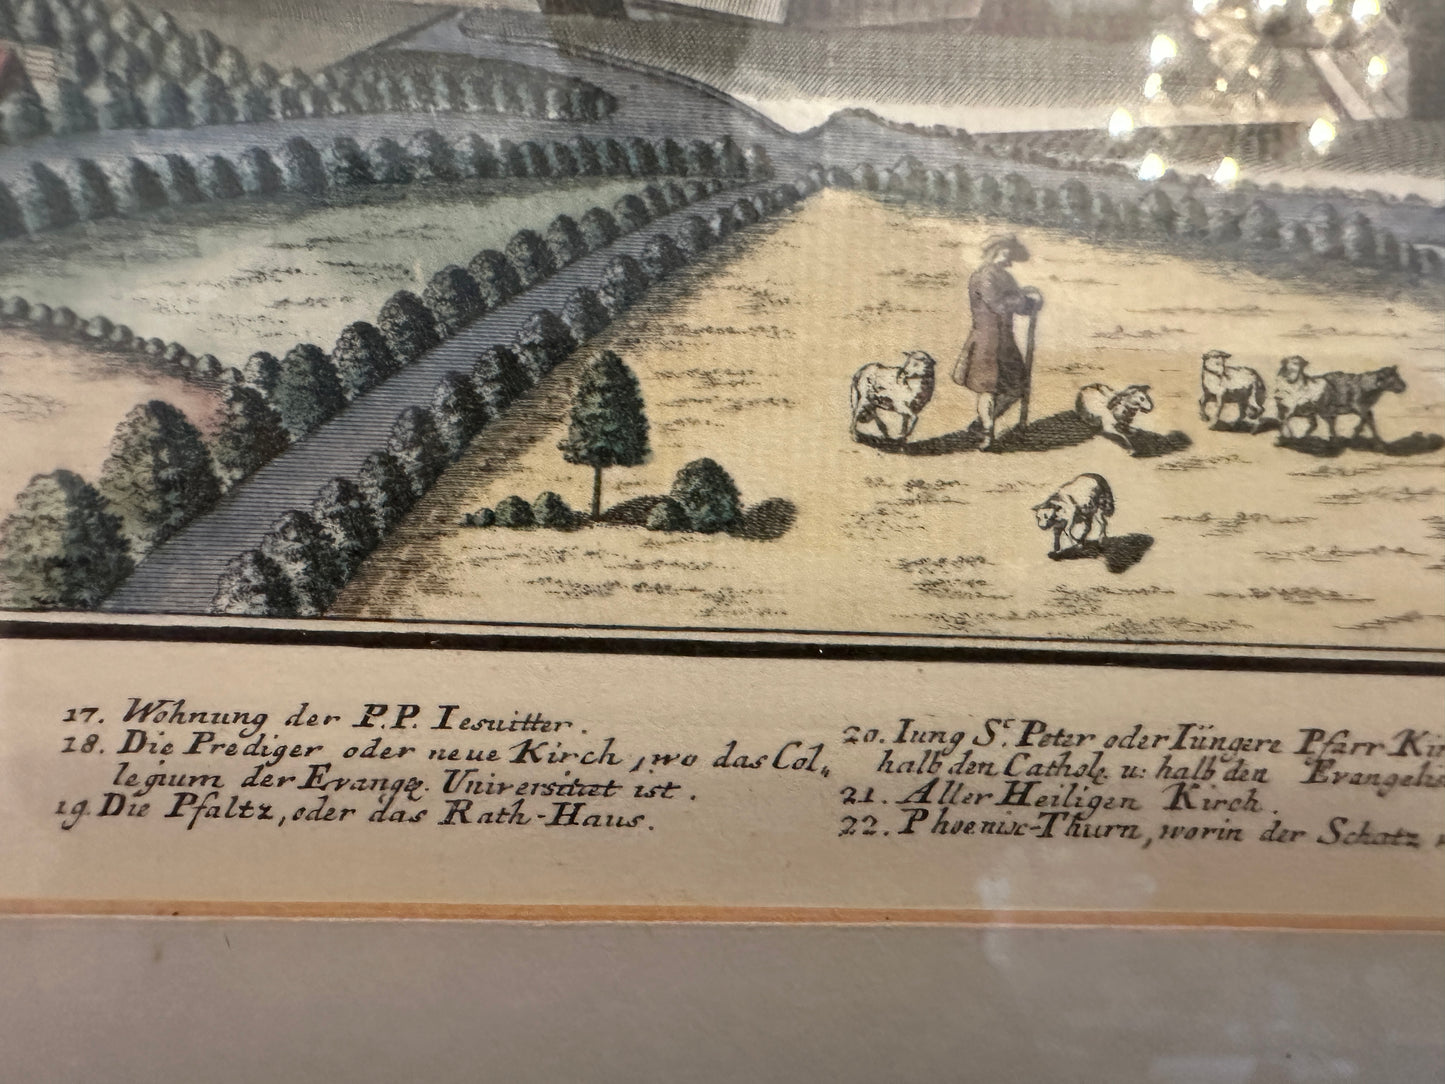 17. Wohnung der P.P. Iesuitter.
18. Die Prediger oder neue Kirch, wo das Col,,
legium der Evange. Universitæt ist.
19. Die Pfaltz, oder das Rath-Haus.
20. Iung St. Peter oder Iüngere Pfarr Kir
halb den Cathole. u: halb den Evangelis
21. Aller Heiligen Kirch.
22. Phoenix-Thurn, worin der Schatz